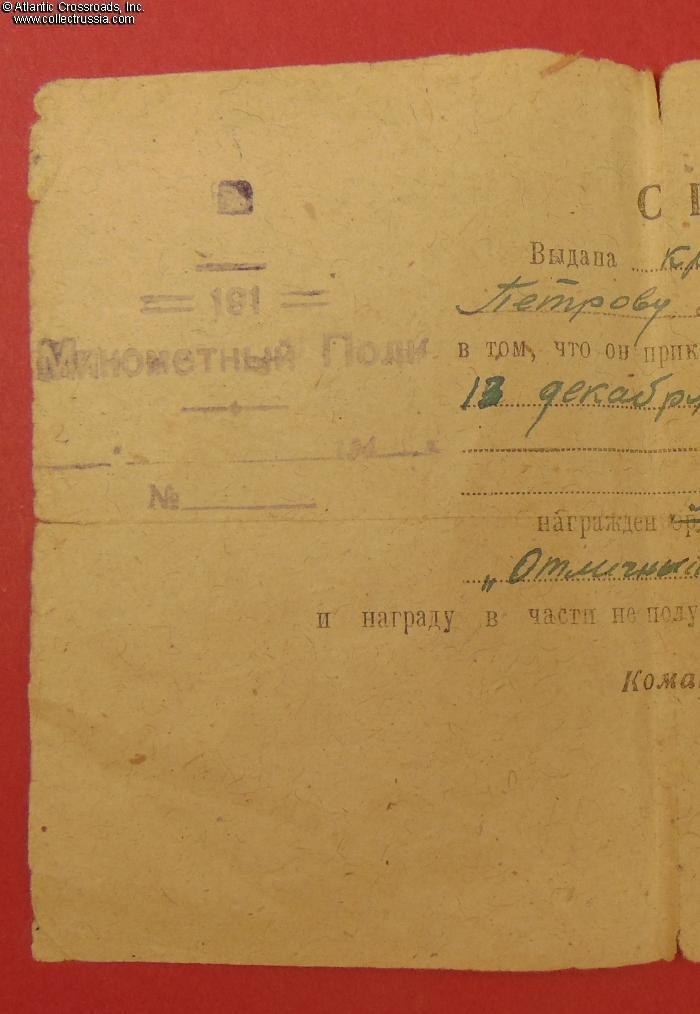 © Atlantic Crossroads, Inc.
www.collectrussia.com
= 191 =
Минометный Полк
194
№
С
Выдана
Петрову
в том, что он прик
13 декабря
награжден
„Отличный
и награду в части не полу
Кома